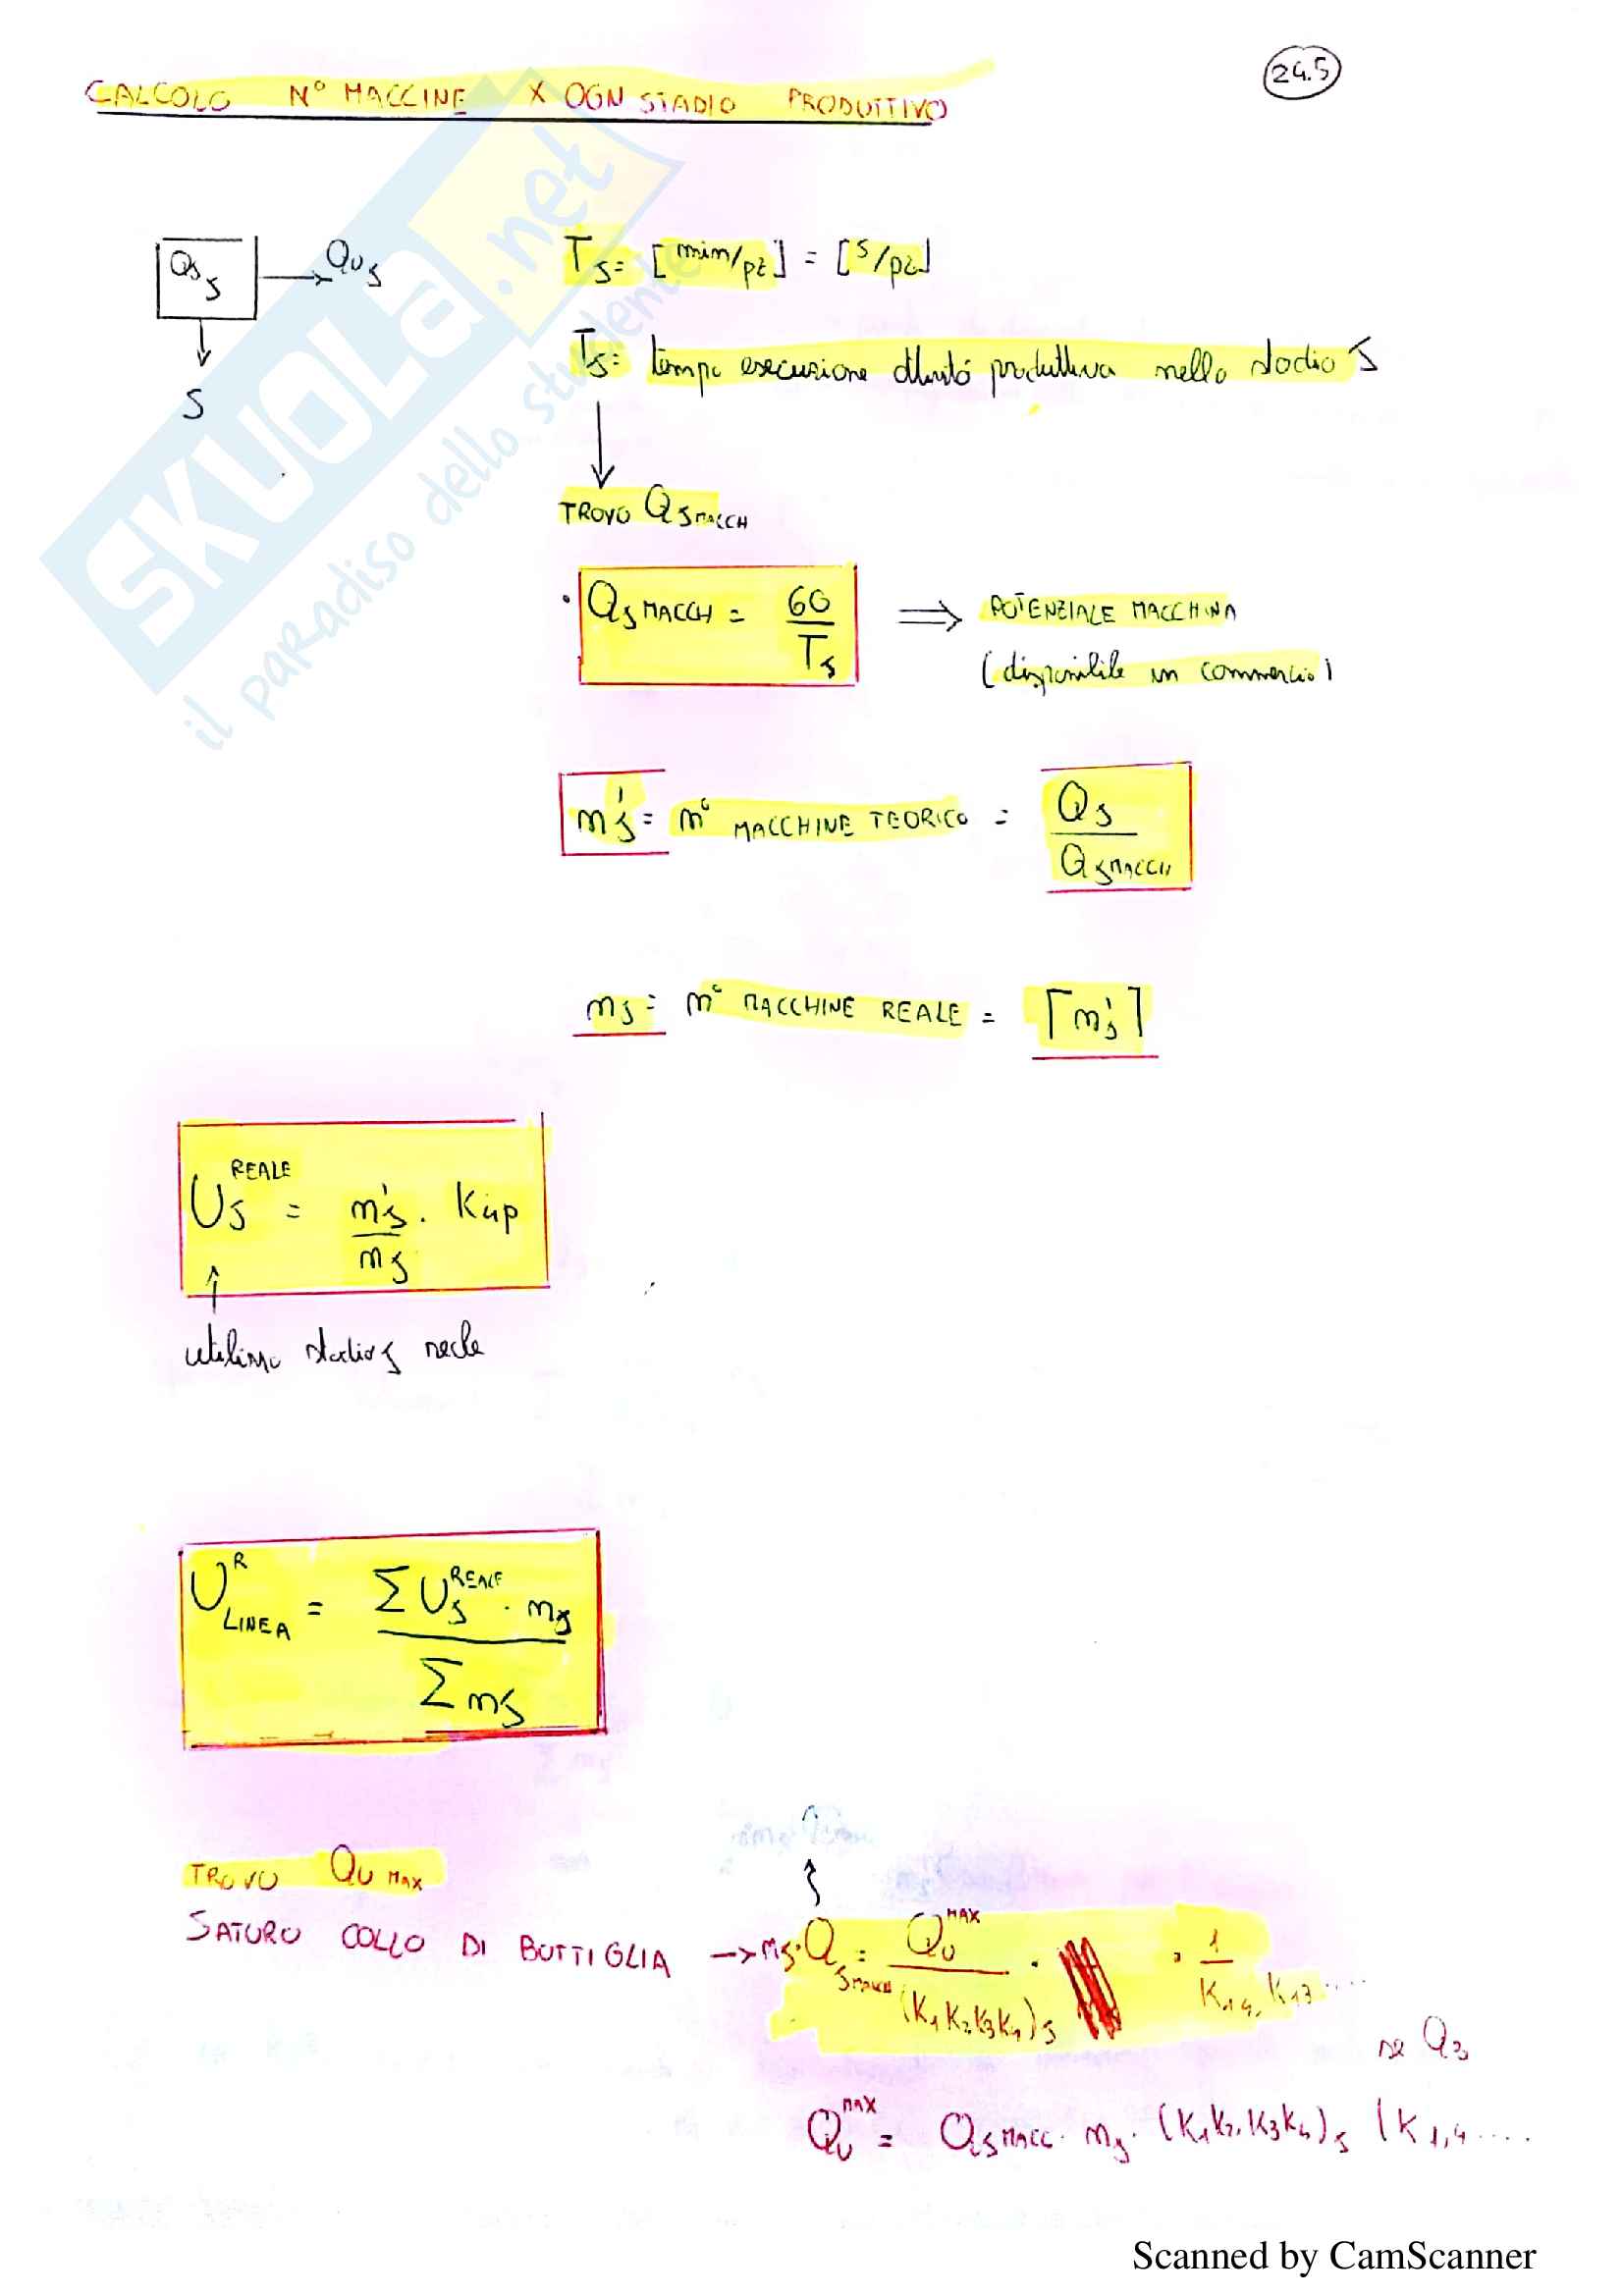 24.5
CALCOLO N° MACCINE X OGN STADIO PRODUTTIVO
QsJ → QUJ
S
TJ = [min/pz] = [s/pz]
TJ = tempo esecuzione attività produttiva nello stadio J
TROVO QJ MACCH
• QJ MACCH = 60 / TJ ⟹ POTENZIALE MACCHINA
(disponibile in commercio)
m'J = m° MACCHINE TEORICO = QJ / QJ MACCH
mJ = m° MACCHINE REALE = ⌈m'J⌉
UJ^REALE = m'J / mJ · Kup
utilizzo stadio J reale
U^R LINEA = ΣUJ^REALE · mJ / ΣmJ
TROVO QU MAX
SATURO COLLO DI BOTTIGLIA → mJ · QJ MACCH = QU^MAX / (K1K2K3K4)J · · 1 / K1,4, K1,3 ....
se Q3
QU^MAX = QJ MACC · mJ · (K1K2.K3K4)J (K1,4 ....
SKUOLA.net
il paradiso dello studente
Scanned by CamScanner